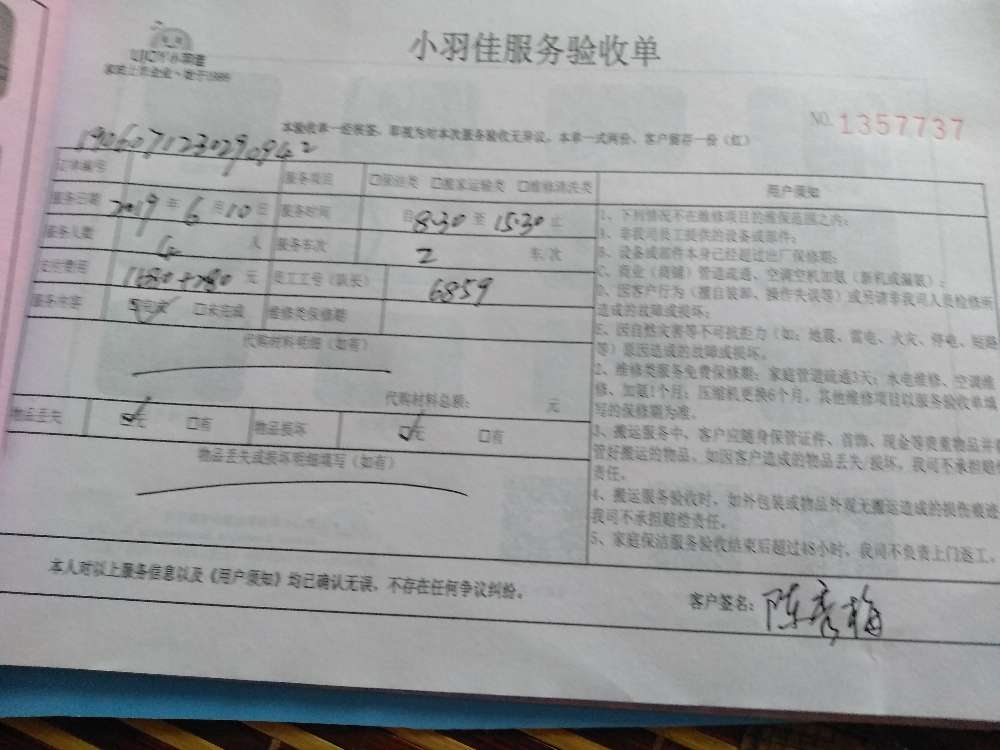 小羽佳服务验收单
UJOY小羽佳
家政上市企业·始于1999
NO. 1357737
本验收单一经客签，即视为对本次服务验收无异议，本单一式两份，客户留存一份（红）
1906071230290942
订单编号 服务项目 □保洁类 □搬家运输类 □维修清洗类
服务日期 2019 年 6 月 10 日 服务时间 自 8:30 至 15:30 止
服务人数 4 人 服务车次 2 车/次
支付费用 1680+280 元 员工工号（队长） 6859
服务内容 ☑完成 □未完成 维修类保修期
代购材料明细（如有）
代购材料总额： 元
物品丢失 ☑无 □有 物品损坏 ☑无 □有
物品丢失或损坏明细填写（如有）
用户须知
1、下列情况不在维修项目的维保范围之内：
A、非我司员工提供的设备或部件；
B、设备或部件本身已经超过出厂保修期；
C、商业（商铺）管道疏通、空调空机加氨（新机或漏氨）；
D、因客户行为（擅自装卸、操作失误等）或另请非我司人员检修所
造成的故障或损坏；
E、因自然灾害等不可抗拒力（如：地震、雷电、火灾、停电、短路
等）原因造成的故障或损坏。
2、维修类服务免费保修期：家庭管道疏通3天；水电维修、空调维
修、加氨1个月；压缩机更换6个月，其他维修项目以服务验收单填
写的保修期为准。
3、搬运服务中，客户应随身保管证件、首饰、现金等贵重物品并
管好搬运的物品，如因客户造成的物品丢失/损坏，我司不承担赔
责任。
4、搬运服务验收时，如外包装或物品外观无搬运造成的损伤痕迹
我司不承担赔偿责任。
5、家庭保洁服务验收结束后超过48小时，我司不负责上门返工。
本人对以上服务信息以及《用户须知》均已确认无误，不存在任何争议纠纷。
客户签名：陈秀梅